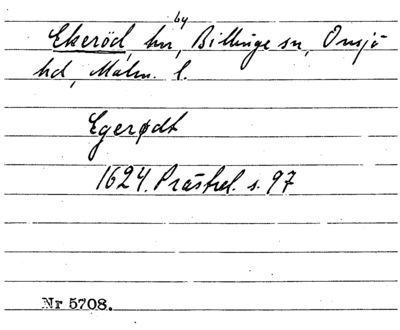 by
Ekeröd, hn, Billinge sn, Onsjö
hd, Malm. l.
Egerødt
1624. Prästrel. s. 97
Nr 5708.